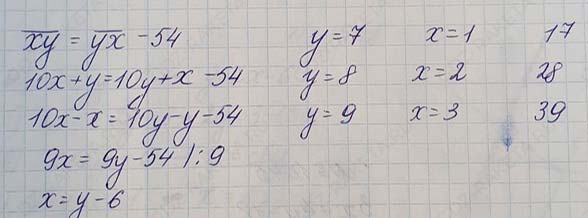 x̅y̅ = y̅x̅ - 54 y = 7 x = 1 17
10x + y = 10y + x - 54 y = 8 x = 2 28
10x - x = 10y - y - 54 y = 9 x = 3 39
9x = 9y - 54 /: 9
x = y - 6